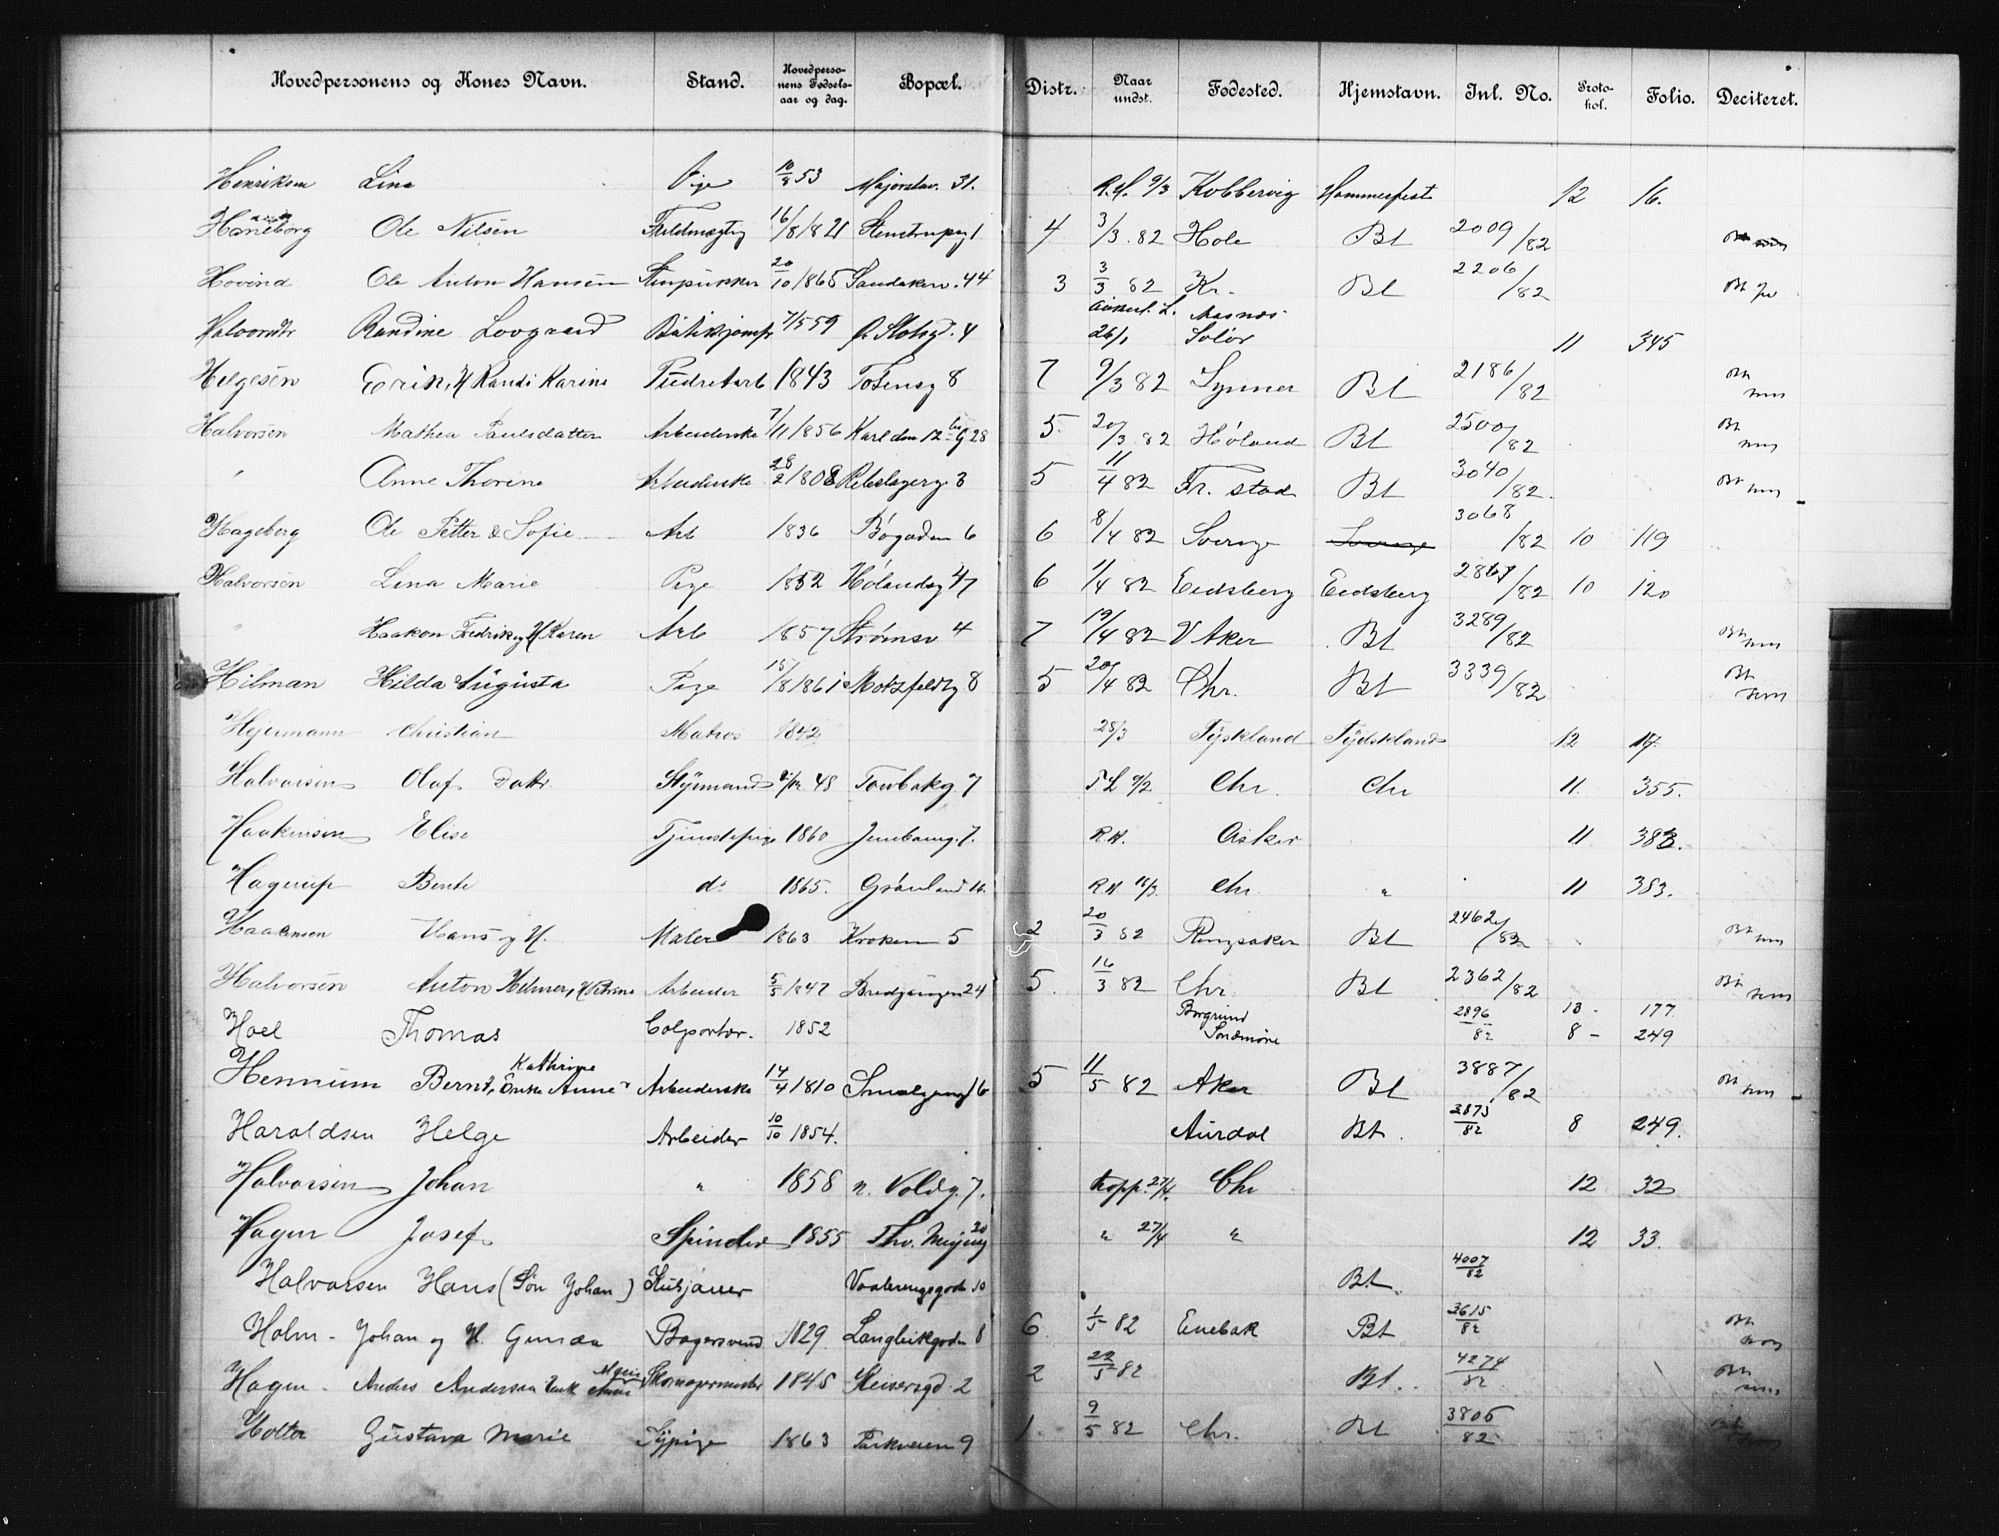 Hovedpersonens og Kones Navn. Stand. Hovedperso-nens Fødsels-aar og dag. Bopæl. Distr. Naar undst. Fødested. Hjemstavn. Inl. No. Proto-kol. Folio. Deciteret.
Henriksen Lina Pige 10/8 53 Majorstuv. 31. R.H. 9/3 Kobbervig Hammerfest 12 16.
Haneborg Ole Nilsen Fuldmægtig 16/8/821 Stenstrupg 1 4 3/3. 82 Hole Bt 2009/82
Hovind Ole Anton Hansen Stenpukker 20/10/1865 Sandakerv. 44 3 3/3 82 Kr. Bt 2206/82 Bt
Halvorsdtr Randine Lovgaard Butikjomfr 7/5 59 . Slotsgd. 4 26/1 Aasnæs Solør 11 345
Helgesen Erik, H Randi Karine Pudretarb 1843 Totensg 8 7 9/3 82 Lynner Bt 2186/82 Bt
Halvorsen Mathea Paulsdatter Arbeiderske 7/11/1856 Karl den 12 G 28 5. 20/3 82 Høland Bt 2500/82 Bt
" Anne Thorine Arbeiderske 28/2/1808 Rebslagerg 3 5 11/4 82 Fr. stad Bt 3040/82 Bt
Hageberg Ole Petter & Sofie Arb 1836 Bögaden 6 6 8/4 82 Sverige Sverige 3068/82 10 119
Halvorsen Lina Marie Pige 1852 Hølandsg 47 6 1/4 82 Eidsberg Eidsberg 2867/82 10 120
" Haakon Fredrik og H Karen Arb 1857 Strømsv 4 7 19/4 82 V Aker Bt 3289/82 Bt
Hilman Hilda Augusta Pige 15/8/1861 Motzfeldtg 8 5 20/4 82 Chr. Bt 3339/82 Bt
Hejermann Christian Matros 1842 28/3 Tyskland Tydskland 12 17.
Halvorsen Olaf Styrmand 48 Torvbakg 7 9/2 Chr. Chr 11 355.
Haakensen Elise Tjenestepige 1860 Jernbaneg. 7. R H. Asker 11 383.
Hagerup Bente do 1865. Grønland 16. R H. 16/3. Chr. " 11 383.
Haakensen Hans og H. Maler 1863 Kroken 5 2 20/3 82 Ringsaker Bt 2462/82 Bt
Halvorsen Anton Hilmer, H Arbeider 5/5/1847 Bredgangen 24 5. 16/3 82 Chr. Bt 2362/82 Bt
Hoel Thomas Colportør. 1852 Borgund Søndmøre 2896/82 13 - 177 8 - 249
Hennum Bernt, Enke Anne Kathrine Arbeiderske 14/4/1810 Smalgang 16 5 11/5 82 Aker Bt 3887/82 Bt
Haraldsen Helge Arbeider 10/10 1854. Aurdal Bt. 3875/82 8 249.
Halvorsen Johan " 1858 n. Voldg. 7. Kopp. 27/4. Chr 12 32
Hagen Josef Spinder 1855 Thv. Meyersg 30 " 27/4 " 12 33.
Halvorsen Hans (Søn Johan) Kusjøner Vaalerengsgade 10 Bt. 4007/82
Holm - Johan og H. Gunda Bagersvend 1829. Langleikgaden 8 6 1/5 82 Enebak Bt 3615/82 Bt
Hagen - Anders Andersen Enke Anne Skomagermester 1845 Skiversgd. 2 2 22/5 82 Bt. 4274/82 Bt
Holter Gustava Marie Sypige 1863 Parkveien 9 1. 9/5 82 Chr. Bt 3805/82 Bt